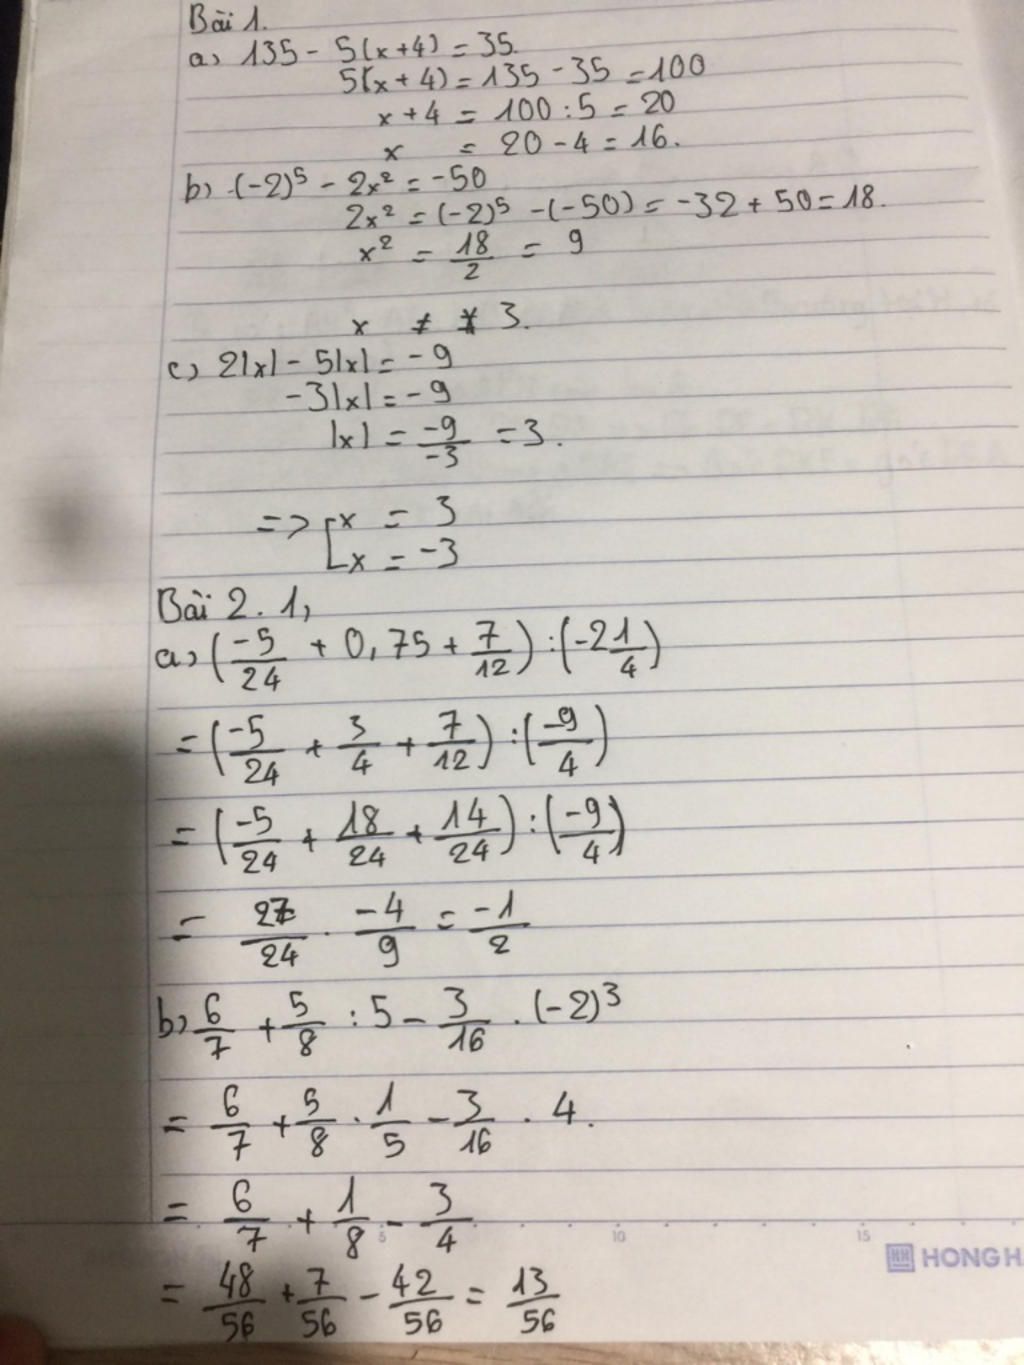 Bài 1.
a, 135 - 5(x+4) = 35.
5(x+4) = 135 - 35 = 100
x + 4 = 100 : 5 = 20
x = 20 - 4 = 16.
b, (-2)⁵ - 2x² = -50
2x² = (-2)⁵ - (-50) = -32 + 50 = 18.
x² = 18/2 = 9
x = 3.
c, 2|x| - 5|x| = -9
-3|x| = -9
|x| = -9/-3 = 3.
=> [x = 3
x = -3
Bài 2. 1,
a, (-5/24 + 0,75 + 7/12) : (-2 1/4)
= (-5/24 + 3/4 + 7/12) : (-9/4)
= (-5/24 + 18/24 + 14/24) : (-9/4)
= 27/24 . -4/9 = -1/2
b, 6/7 + 5/8 : 5 - 3/16 . (-2)³
= 6/7 + 5/8 . 1/5 - 3/16 . 4.
= 6/7 + 1/8 - 3/4
5 10 15
HONG H
= 48/56 + 7/56 - 42/56 = 13/56